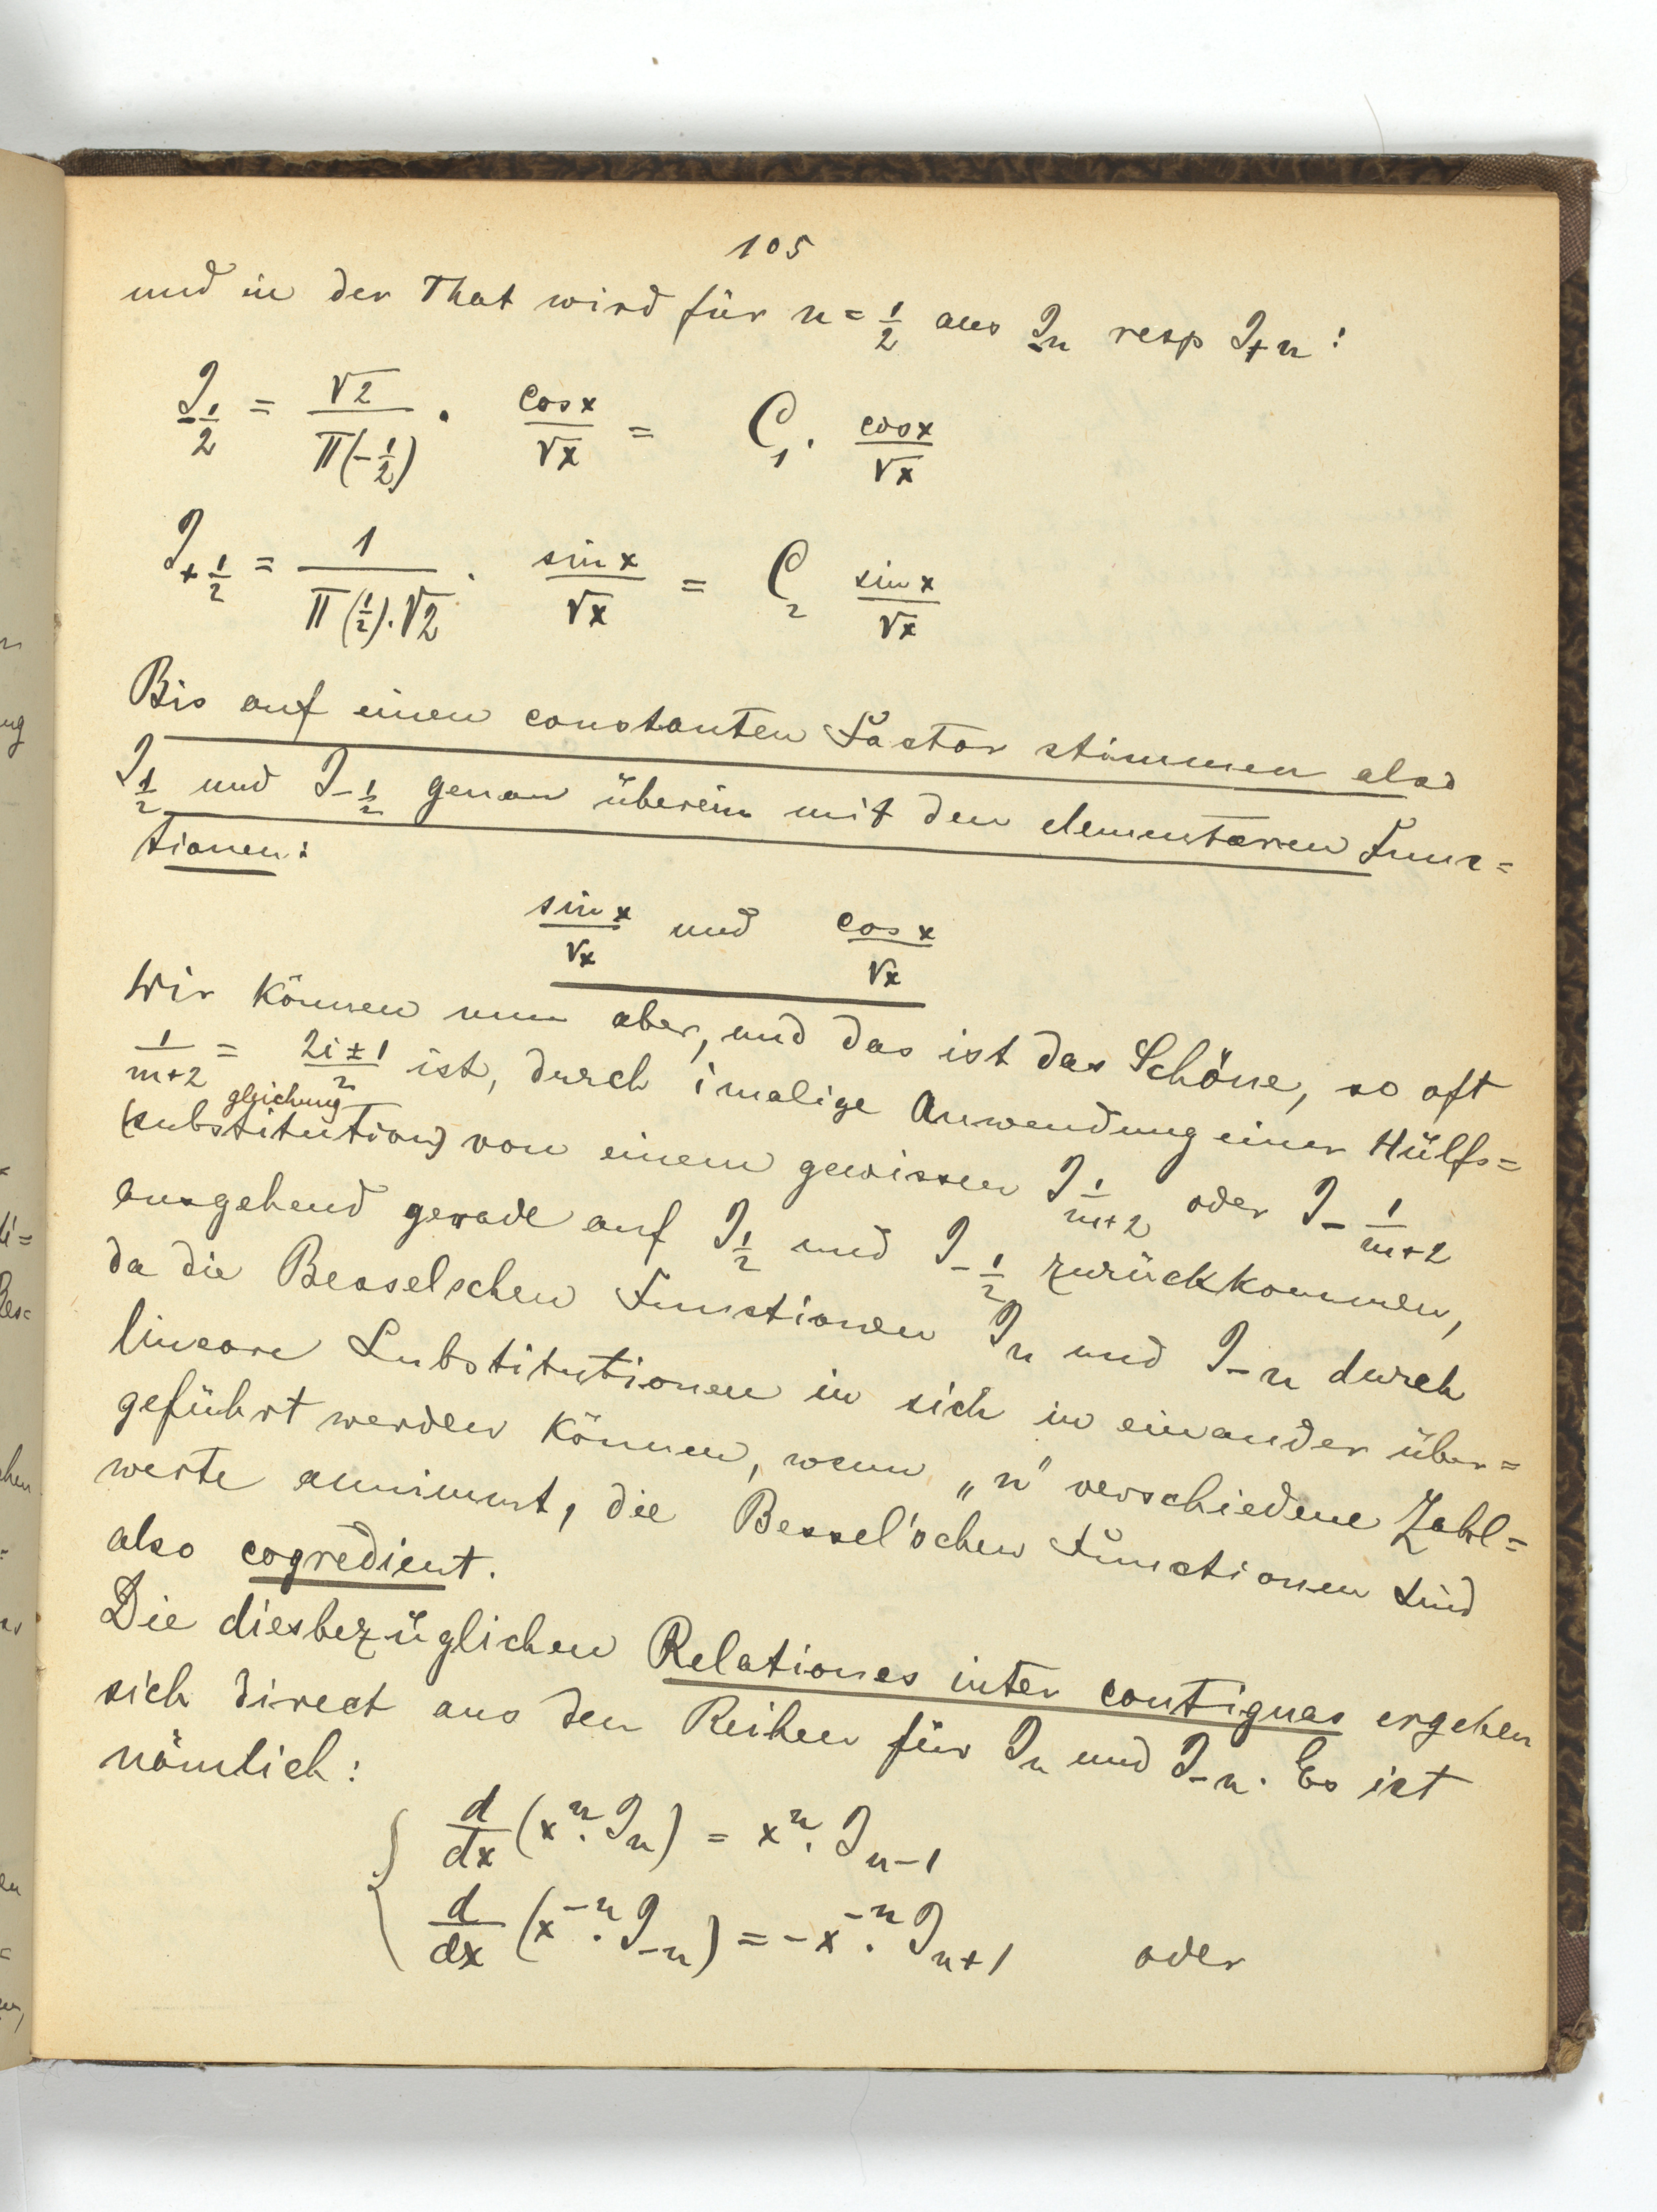 105
und in der That wird für n = 1/2 aus J_-n resp J_+n :
J_-1/2 = √2 / Π(-1/2) · cos x / √x = C_1 · cos x / √x
J_+1/2 = 1 / Π(1/2).√2 · sin x / √x = C_2 sin x / √x
Bis auf einen constanten Factor stimmen also
J_1/2 und J_-1/2 genau überein mit den elementaren Func=
tionen:
sin x / √x und cos x / √x
Wir können nun aber, und das ist das Schöne, so oft
1/m+2 = 2i±1 / 2 ist, durch i malige Anwendung einer Hülfs=
gleichung
(substitution) von einem gewissen J_1/m+2 oder J_- 1/m+2
ausgehend gerade auf J_1/2 und J_-1/2 zurückkommen,
da die Besselschen Functionen J_n und J_-n durch
lineare Substitutionen in sich in einander über=
geführt werden können, wenn „n" verschiedene Zahl=
werte annimmt, die Bessel'schen Functionen sind
also cogredient.
Die diesbezüglichen Relationes inter contiguas ergeben
sich direct aus den Reihen für J_n und J_-n. Es ist
nämlich:
d/dx (x^n · J_n) = x^n · J_n-1
d/dx (x^-n · J_-n) = - x^-n · J_n+1 oder